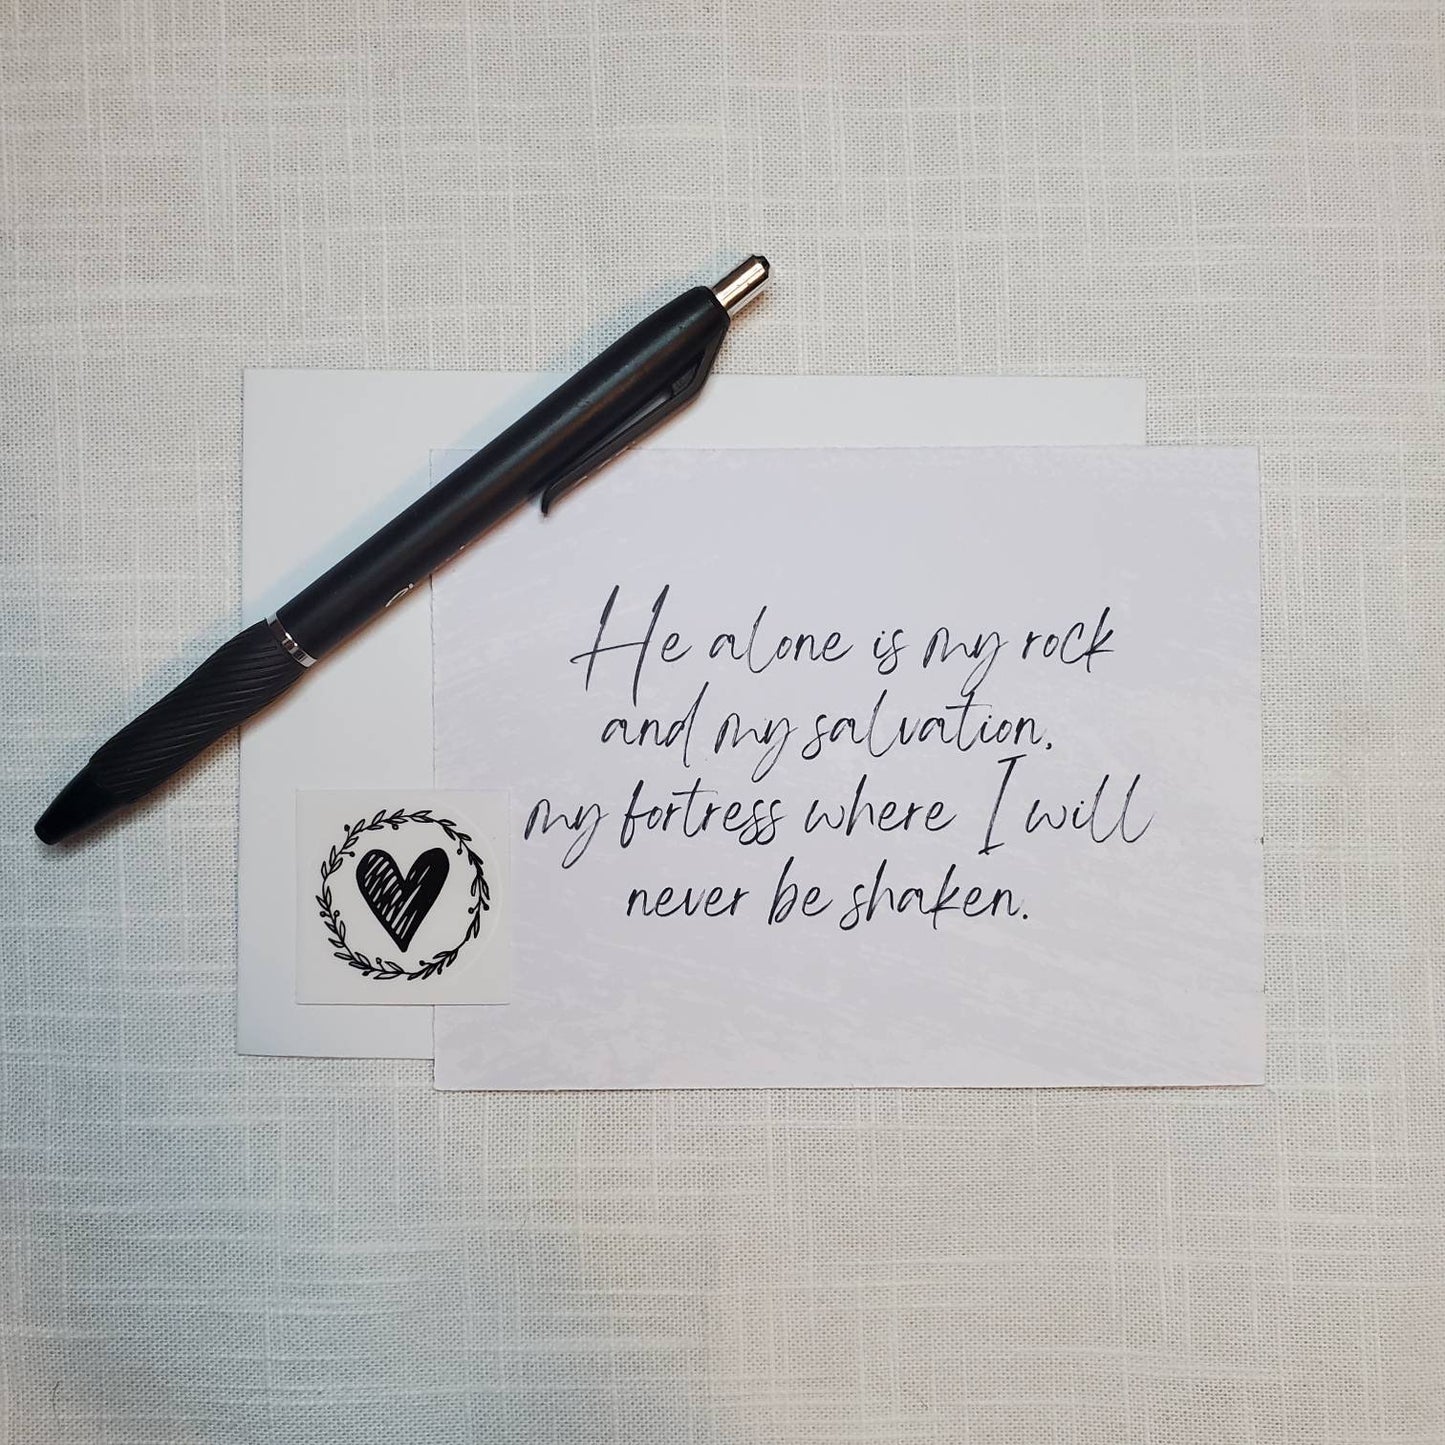 He alone is my rock
and my salvation,
my fortress where I will
never be shaken.